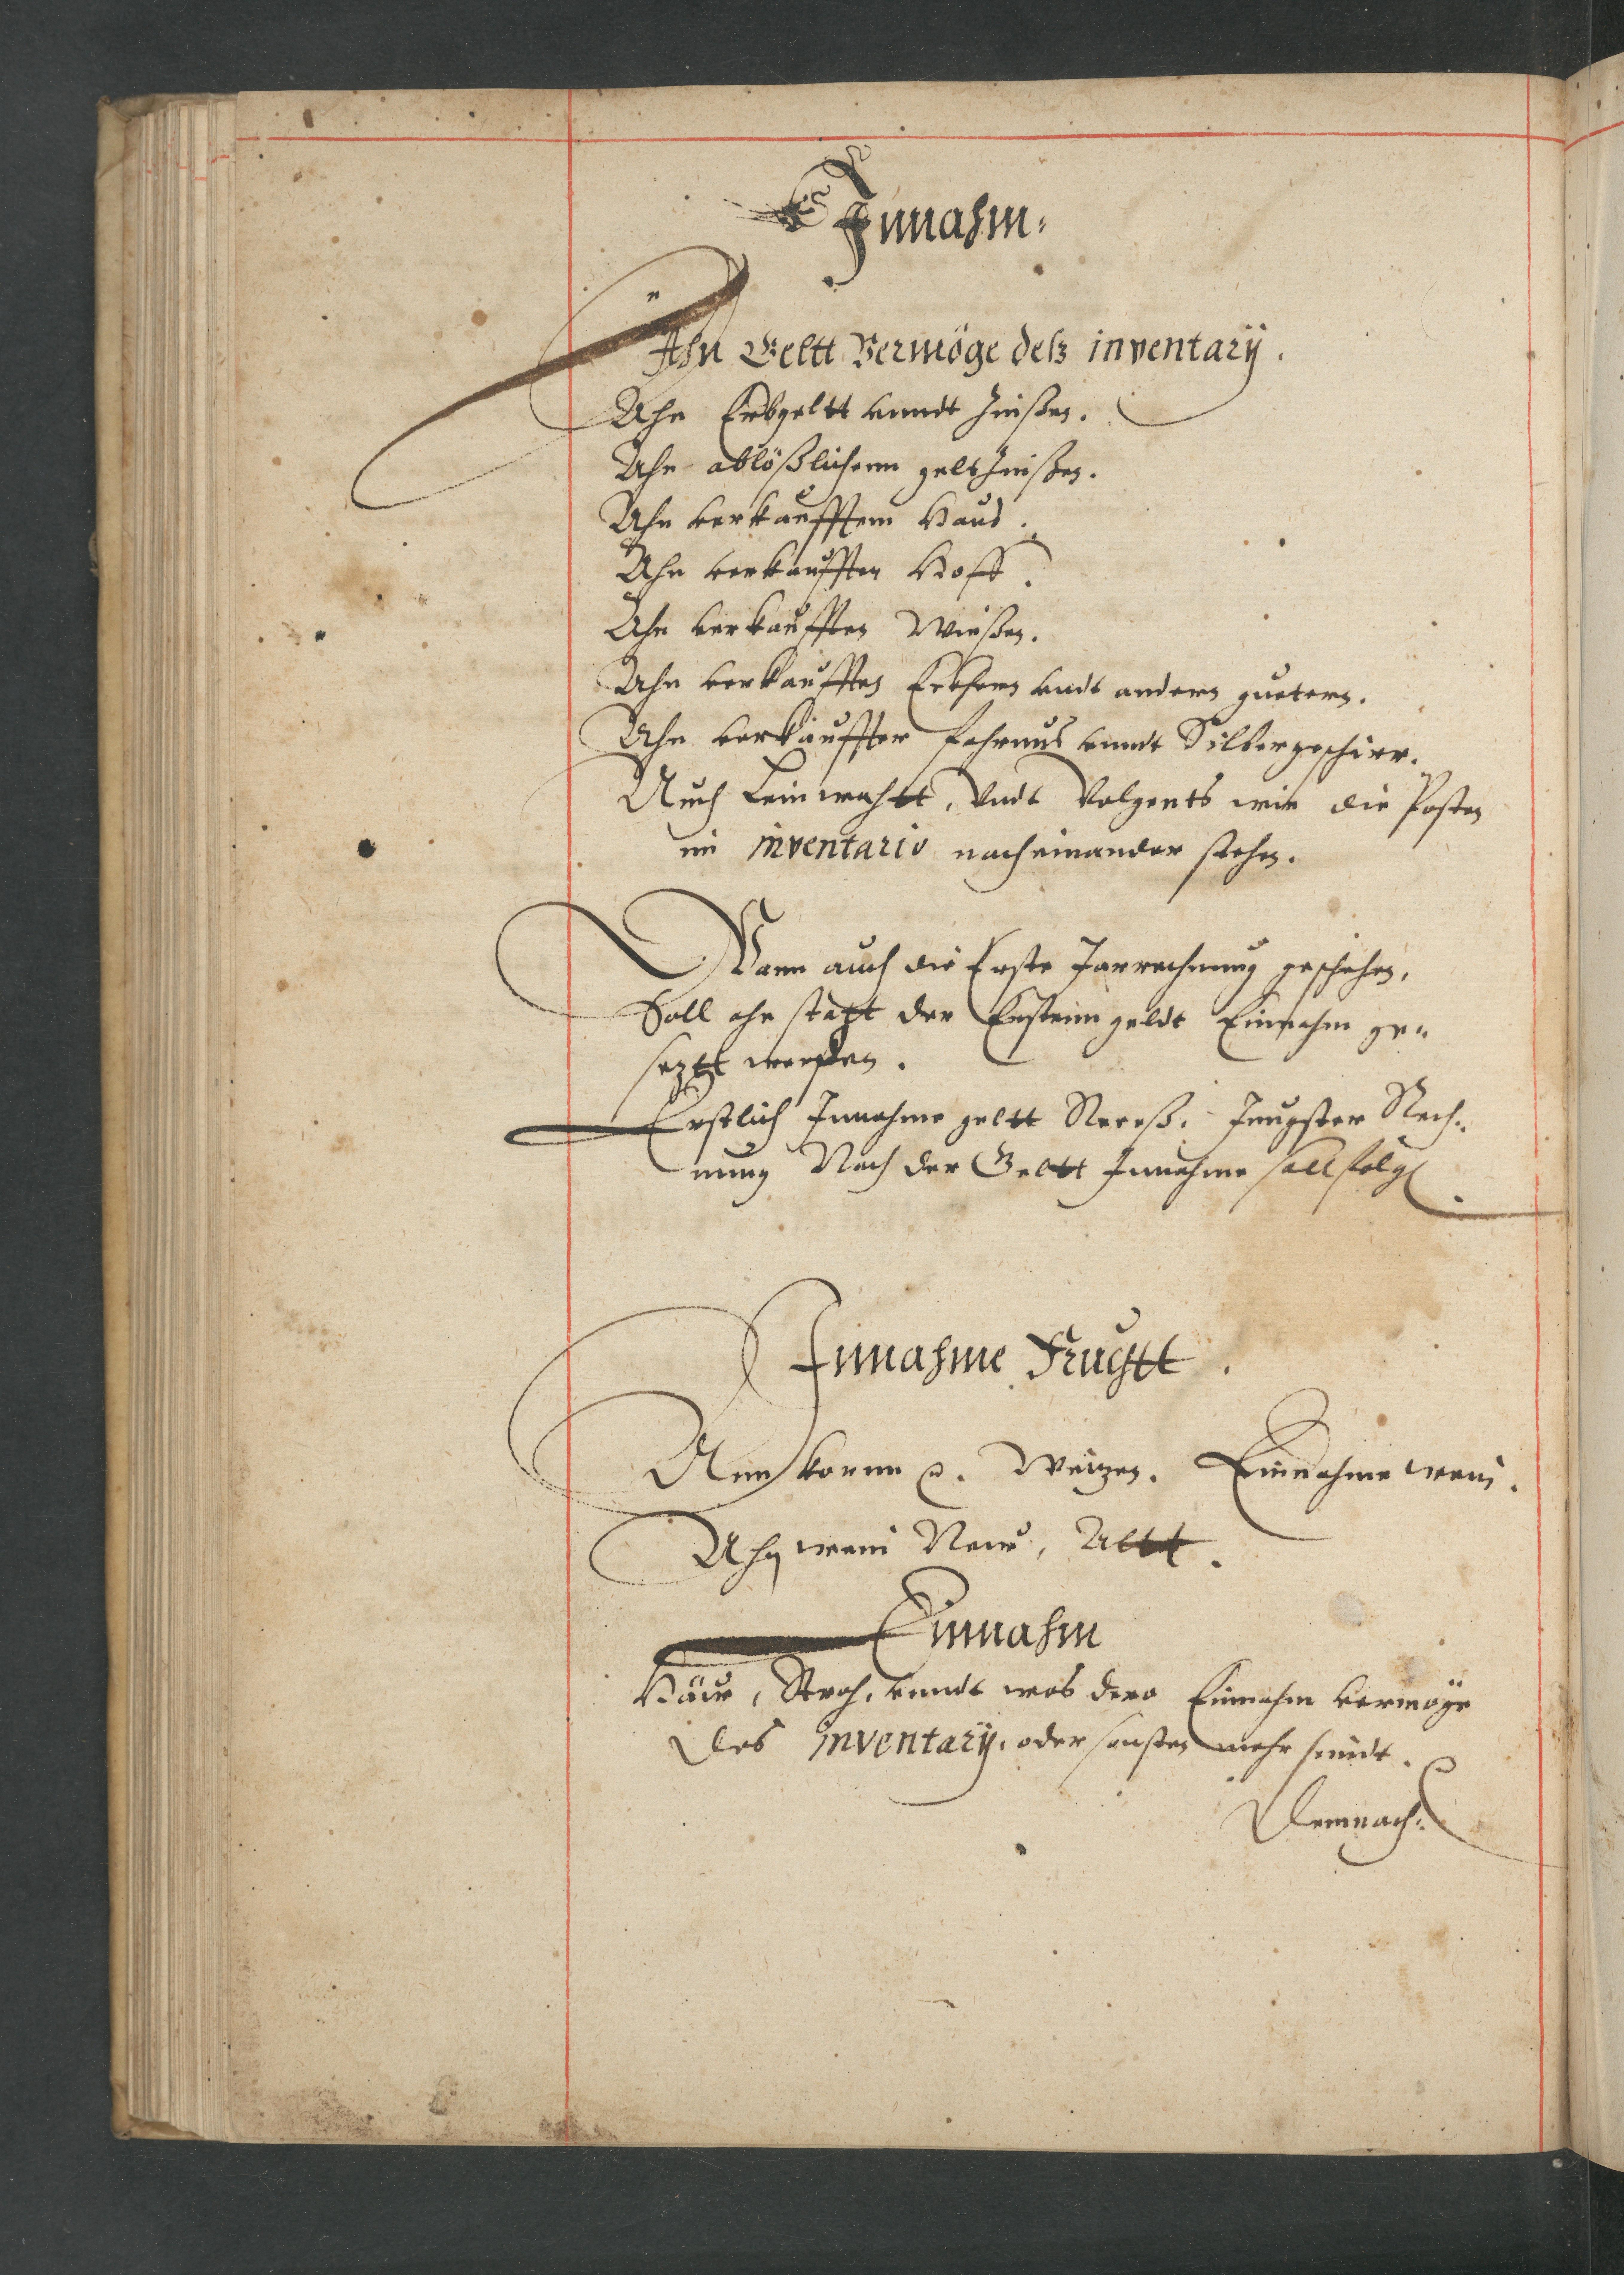 Innahm:
Ahn Geltt Vermöge deß inventarÿ.
Ahn Erbgeltt vnndt Zinßen.
Ahn ablößlichenn geltzinßen.
Ahn verkaufftem Haus.
Ahn verkaufften Hoff.
Ahn verkaufften Wießen.
Ahn verkaufften vndt andern guetern.
Ahn verkauffter fahrnus vnndt Silbergeschirr.
Auch Leinwahtt, Vndt Volgents wie die Posten
im inventario nacheinander stehen.
Wann auch die Erste Jarrechnung geschehen,
Soll ahn statt der Ersten geldt Einnahm ge„
setzt werden.
Erstlich Innahme geltt Receß, Jüngster Rech„
nung Nach der Geltt Innahme soll folgen.
Innahme Fruchtt.
Ann Kornn Weitzen. Einnahme wein.
Ahn wein New, Altt.
Einnahm
Häw, Stroh, vnndt was dero Einnahm vermöge
des inventarÿ, oder sonsten mehr seindt.
Demnach: